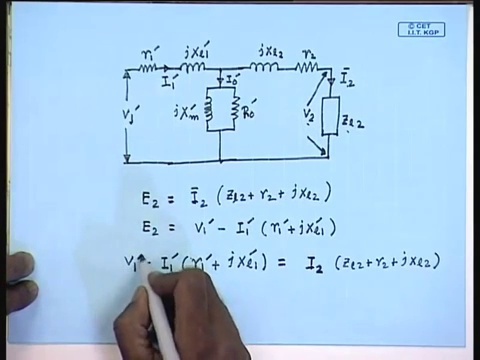 © CET
I.I.T. KGP
r₁′ jxₗ₁′ jxₗ₂ r₂
I₁′ I₀′ Ī₂
V₁′ jXₘ′ R₀′ V₂ Zₗ₂
E₂ = Ī₂ (Zₗ₂ + r₂ + jxₗ₂)
E₂ = V₁′ - I₁′ (r₁′ + jxₗ₁′)
V₁′ - I₁′ (r₁′ + jxₗ₁′) = I₂ (Zₗ₂ + r₂ + jxₗ₂)